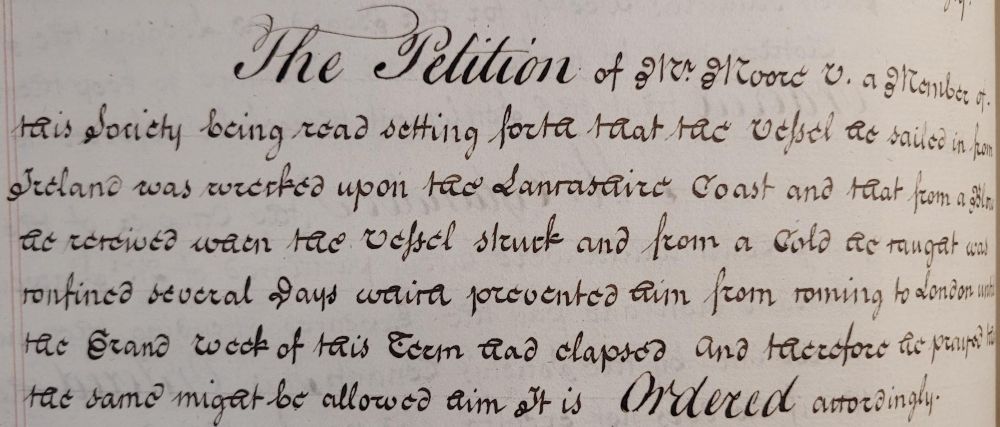 The Petition of Mr. Moore V. a Member of
this Society being read setting forth that the Vessel he sailed in from
Ireland was wrecked upon the Lancashire Coast and that from a Blow
he received when the Vessel struck and from a Cold he caught was
confined several Days which prevented him from coming to London until
the Grand week of this Term had elapsed And therefore he prayed
the same might be allowed him It is Ordered accordingly.